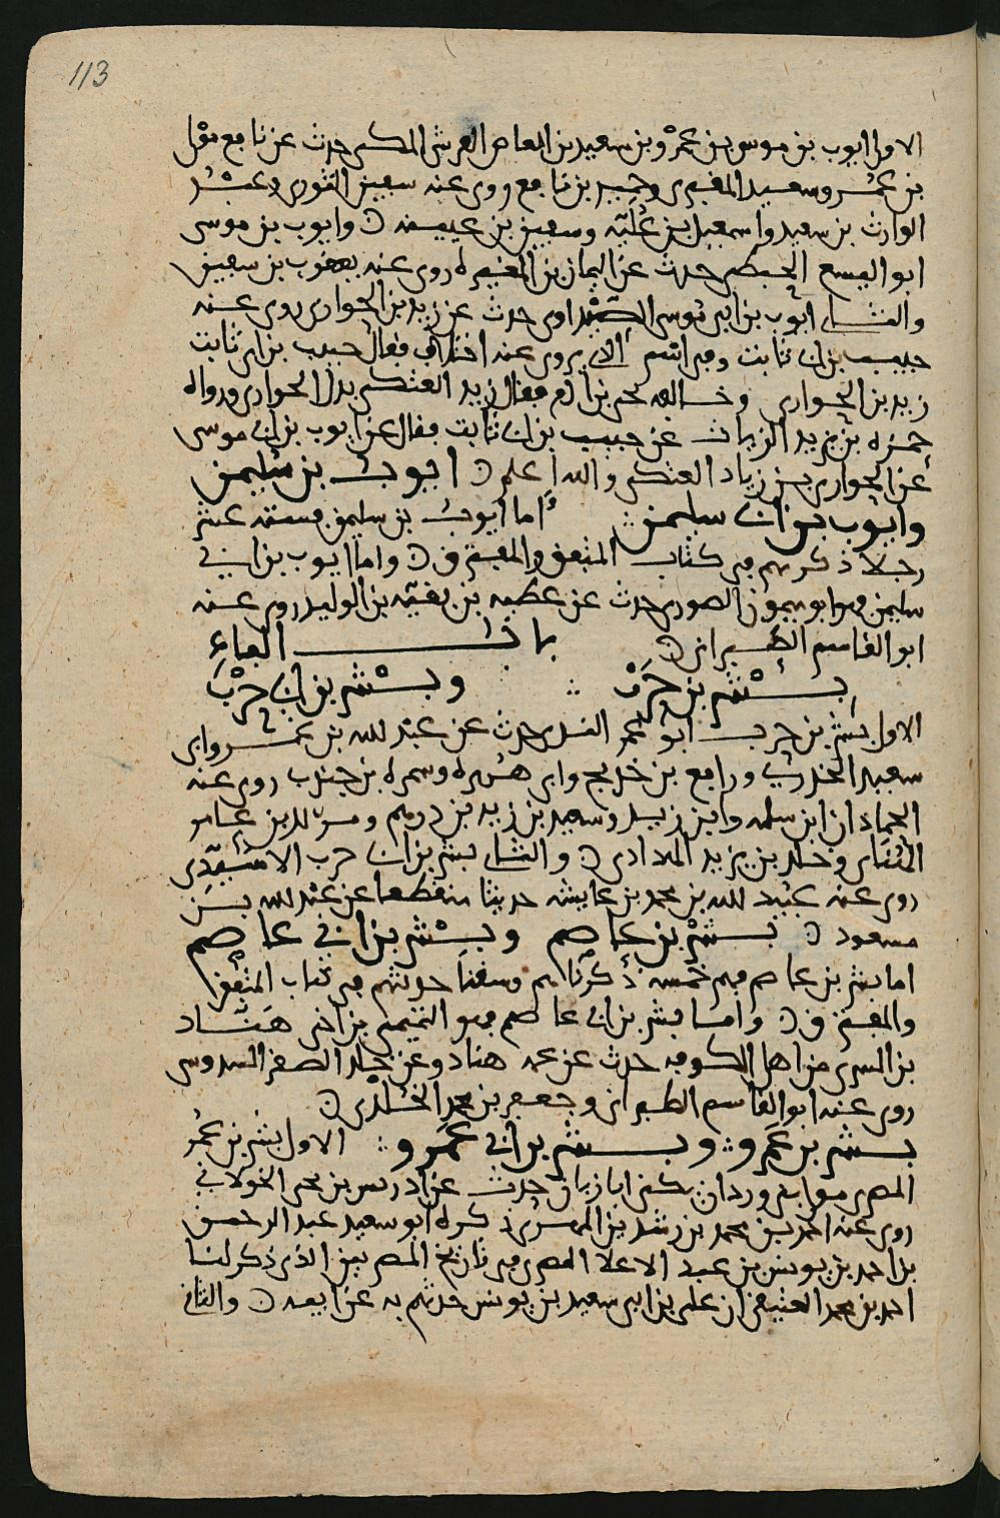 113
الاول ايوب بن موسى بن عمرو بن سعيد بن العاص القرشي المكي حدث عن نافع مولى
بن عمر وسعيد المقبري وجبير بن نافع روى عنه سفين الثوري وعبد
الوارث بن سعيد واسمعيل بن علية وسفين بن عيينه ۞ وايوب بن موسى
ابو اليسع الحبطي حدث عن اليمان بن المغيره روى عنه يعقوب بن سفين
والثاني ايوب بن ابي موسى حدث عن زيد بن الحواري روى عنه
حبيب بن ابي ثابت وفي اسم الذي يروي عنه اختلاف فقال حبيب بن ابي ثابت
زيد بن الحواري وخالفه يحيى بن ادم فقال زيد العتكي بدل الحواري ورواه
حمزه بن يزيد الزيات عن حبيب بن ابي ثابت فقال عن ايوب بن ابي موسى
عن الحواري بن زياد العتكي والله اعلم ۞ ايوب بن سليمن
وايوب بن ابي سليمن اما ايوب بن سليمن فستة عشر
رجلا ذكرتهم في كتاب المتفق والمفترق ۞ واما ايوب بن ابي
سليمن فهو ابو ميمون الصوري حدث عن عطيه بن بقيه بن الوليد روى عنه
ابو القاسم الطبراني ۞ باب الباء
بشر بن حرب وبشر بن ابي حرب
الاول بشر بن حرب ابو عمرو الندبي حدث عن عبد الله بن عمر وابي
سعيد الخدري ورافع بن خديج وابي هريره وسمره بن جندب روى عنه
الحمادان ابن سلمه وابن زيد وسعيد بن زيد بن درهم ومرثد بن عامر
الهنائي وخلد بن يزيد الهدادي ۞ والثاني بشر بن ابي حرب
روى عنه عبيد الله بن محمد بن عايشه حديثا منقطعا عن عبد الله بن
مسعود ۞ بشر بن عاصم وبشر بن ابي عاصم
اما بشر بن عاصم فهم خمسه ذكرناهم وسقنا حديثهم في كتاب المتفق
والمفترق ۞ واما بشر بن ابي عاصم فهو التميمي بن اخي هناد
بن السري من اهل الكوفه حدث عن عمه هناد وعن خلد الصفر السدوسي
روى عنه ابو القاسم الطبراني وجعفر بن محمد الخلدي ۞
بشر بن عمرو وبشر بن ابي عمرو الاول بشر بن عمرو
المصري مولى وردان يكنى ابا زيان حدث عن ادريس بن يحيى الخولاني
روى عنه احمد بن محمد بن رشدين المهري ذكره ابو سعيد عبد الرحمن
بن احمد بن يونس بن عبد الاعلا المصري في تاريخ المصريين الذي ذكر لنا
احمد بن محمد العتيقي ان علي بن ابي سعيد بن يونس حدثهم به عن ابيه ۞ والثاني